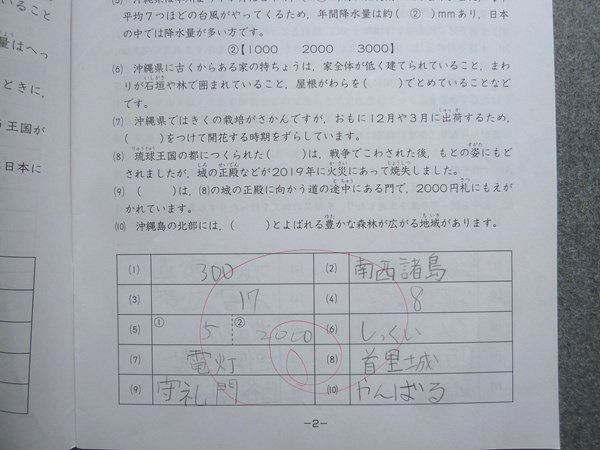 平均7つほどの台風がやってくるため，年間降水量は約（ ② ）mmあり，日本
の中では降水量が多い方です。
②【1000 2000 3000】
(6) 沖縄県に古くからある家の特ちょうは，家全体が低く建てられていること，まわ
りが石垣や林で囲まれていること，屋根がわらを（ ）でとめていることなど
です。
(7) 沖縄県ではきくの栽培がさかんですが，おもに12月や3月に出荷するため，
（ ）をつけて開花する時期をずらしています。
(8) 琉球王国の都につくられた（ ）は，戦争でこわされた後，もとの姿にもど
されましたが，城の正殿などが2019年に火災にあって焼失しました。
(9) （ ）は，(8)の城の正殿に向かう道の途中にある門で，2000円札にもえが
かれています。
(10) 沖縄島の北部には，（ ）とよばれる豊かな森林が広がる地域があります。
(1) 300 (2) 南西諸島
(3) 17 (4) 8
(5) ① 5 ② 2000 (6) しっくい
(7) 電灯 (8) 首里城
(9) 守礼門 (10) やんばる
−2−
量はへっ
ときに，
王国が
日本に